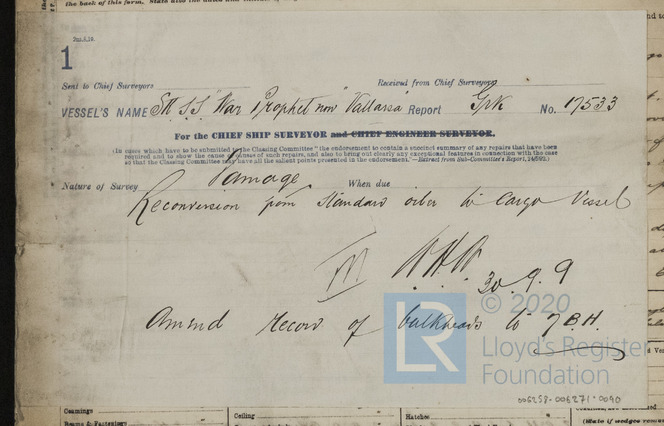 the back of this form.
1
Sent to Chief Surveyors Received from Chief Surveyors
VESSEL'S NAME Stl S.S. "War Prophet" now "Vallarsa" Report Grk No. 17533
For the CHIEF SHIP SURVEYOR and CHIEF ENGINEER SURVEYOR.
(In cases which have to be submitted to the Classing Committee "the endorsement to contain a succinct summary of any repairs that have been
required and to show the cause or causes of such repairs, and also to bring out clearly any exceptional features in connection with the case
so that the Classing Committee may have all the salient points presented in the endorsement."—Extract from Sub-Committee's Report,
Nature of Survey Damage When due
Reconversion from standard oiler to Cargo Vessel
30.9.9
Amend record of bulkheads to 7 B.H.
© 2020
LR Lloyd's Register
Foundation
006258-006271-0090
Coamings
Ceiling
Hatches
Beams & Fastenings
(State if wedges